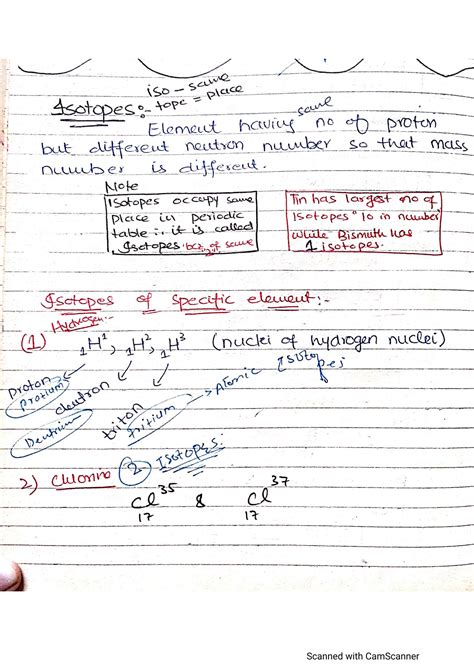 iso - same
Isotopes:- tope = place
Element having same no of proton
but different neutron number so that mass
number is different.
Note
Isotopes occupy same
place in periodic
table ∴ it is called
Isotopes bcz of same
Tin has largest no of
Isotopes "10 in number"
while Bismuth has
1 isotopes.
Isotopes of specific element:-
Hydrogen:-
(1) ₁H¹, ₁H², ₁H³ (nuclei of hydrogen nuclei)
proton deutron triton
Protium Deutrium Tritium → Atomic Isotopes
2) Chlorine 2 Isotopes:
₁₇Cl³⁵ & ₁₇Cl³⁷
Scanned with CamScanner